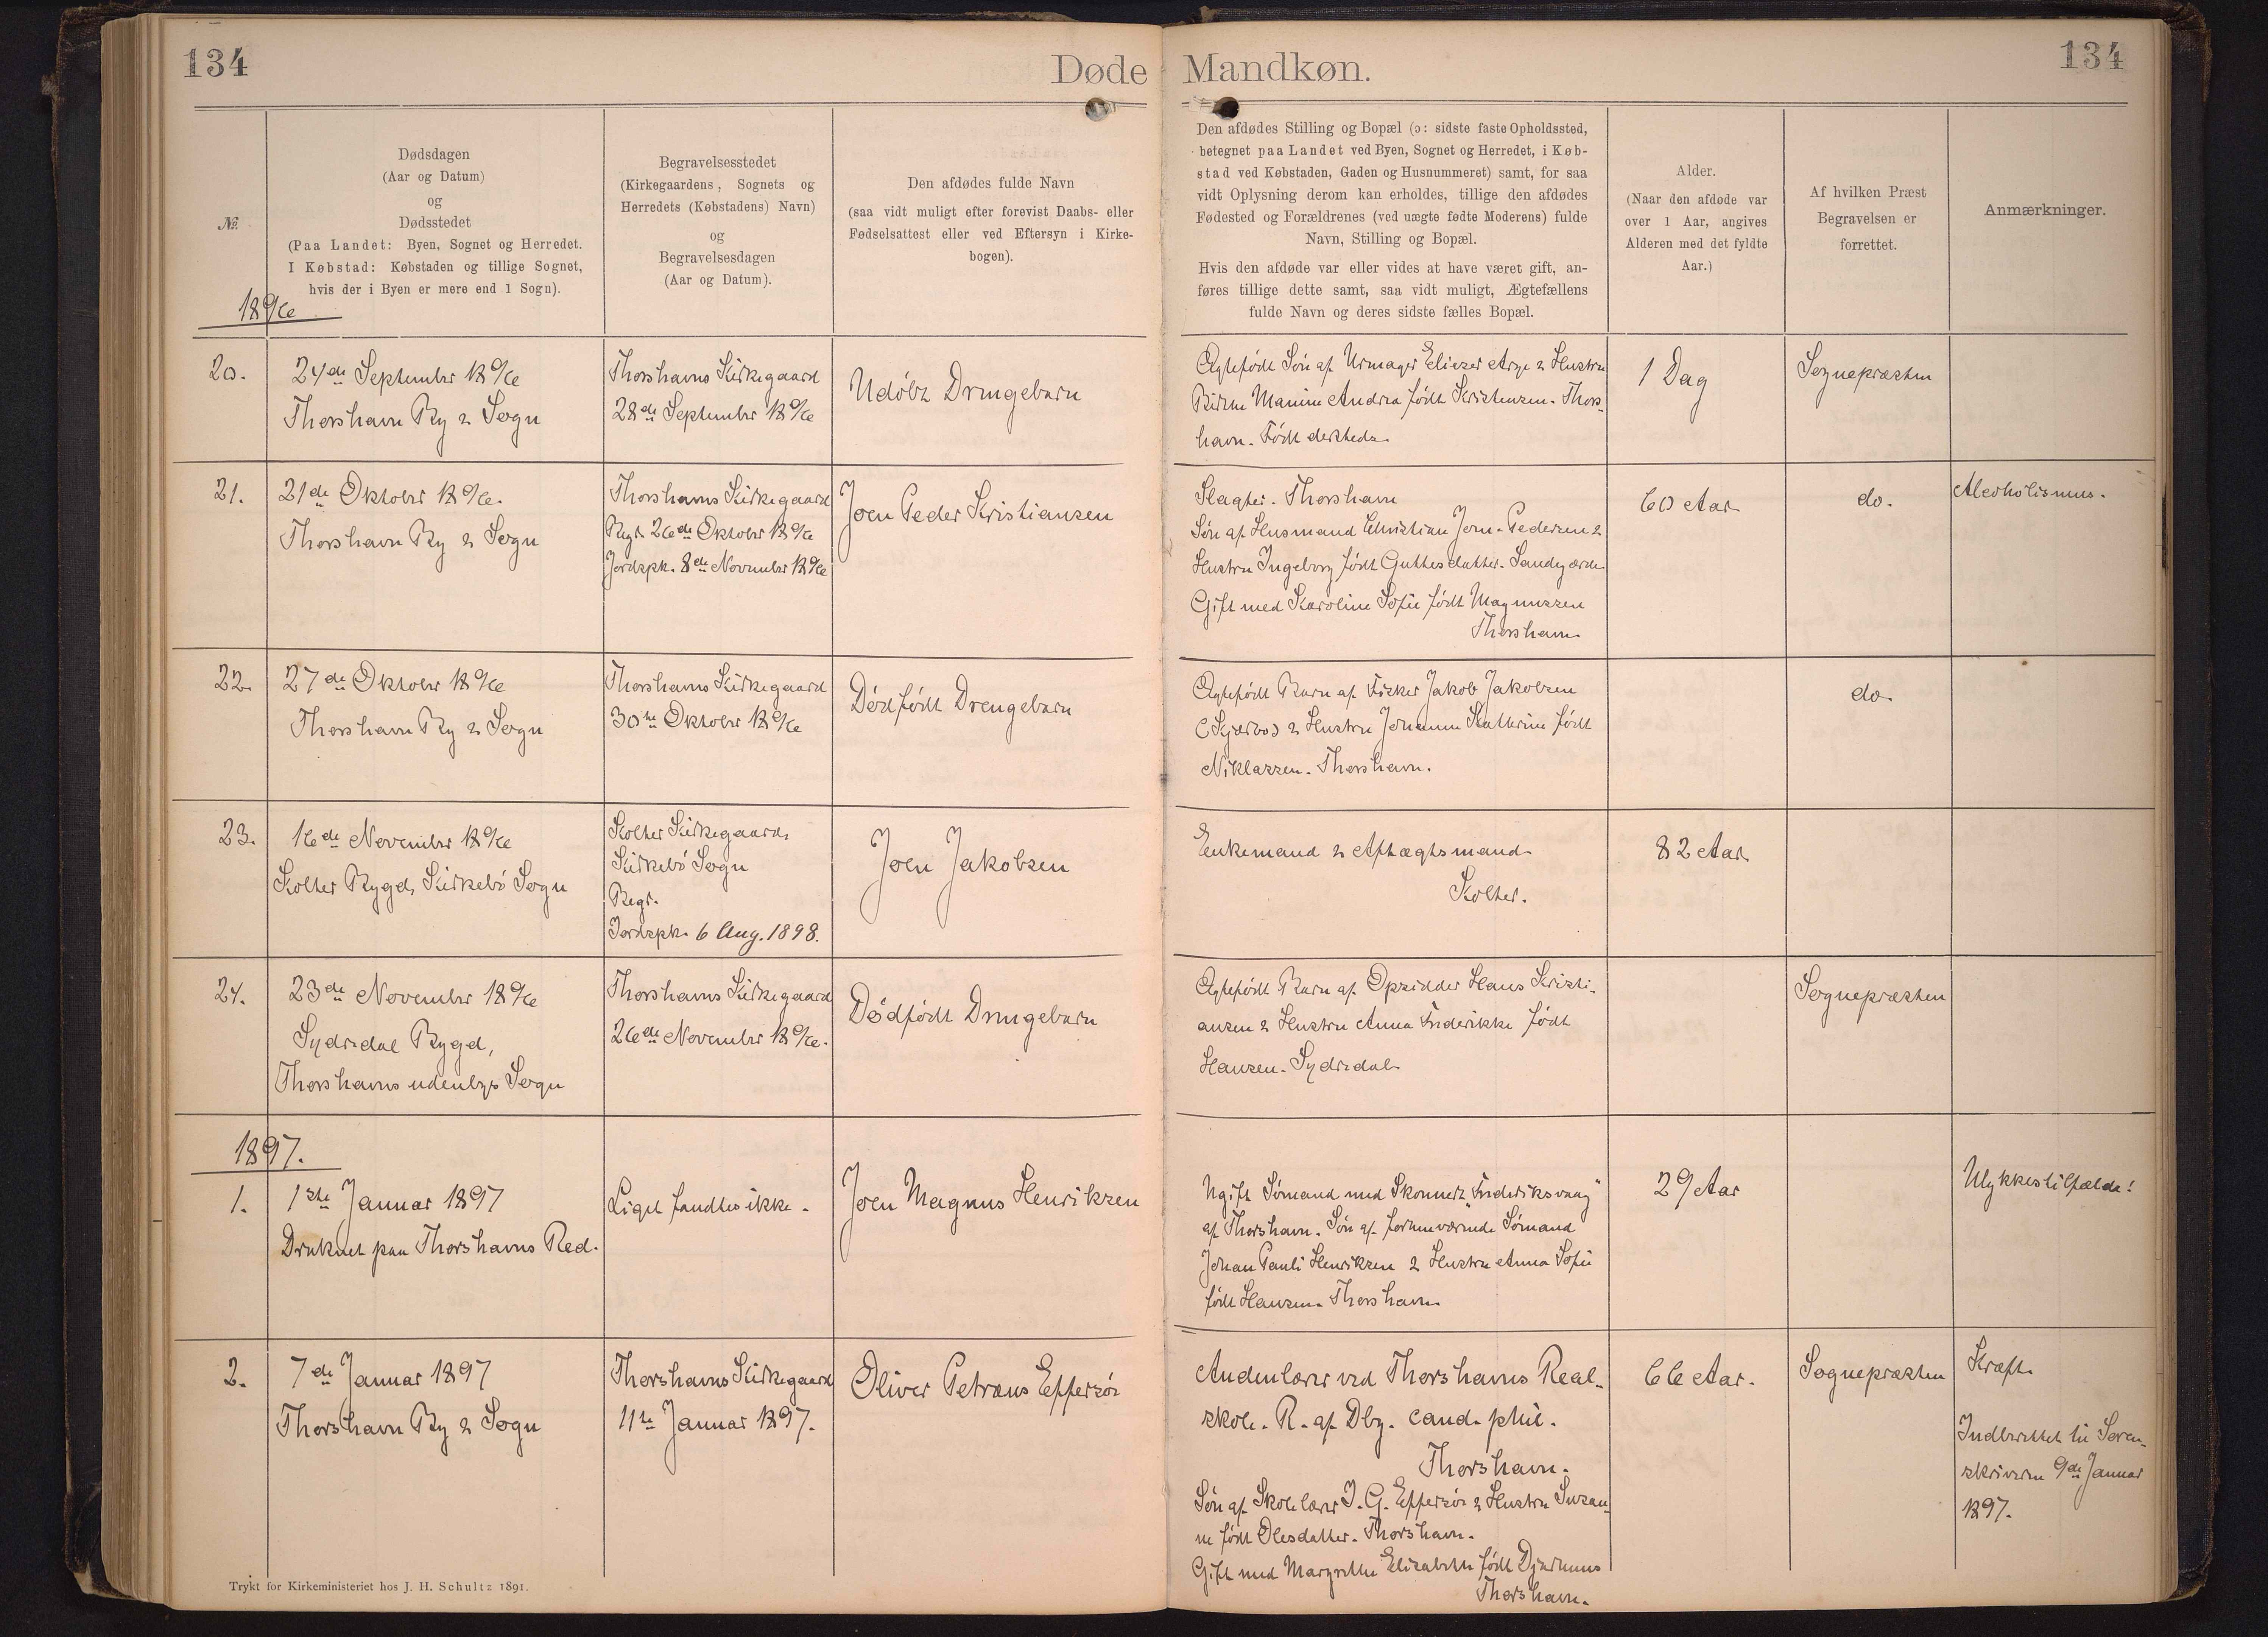 134
Døde Mandkøn.
134
№.
Dødsdagen
(Aar og Datum)
og
Dødsstedet
(Paa Landet: Byen, Sognet og Herredet.
I Købstad: Købstaden og tillige Sognet,
hvis der i Byen er mere end 1 Sogn).
Begravelsesstedet
(Kirkegaardens, Sognets og
Herredets (Købstadens) Navn)
og
Begravelsesdagen
(Aar og Datum).
Den afdødes fulde Navn
(saa vidt muligt efter forevist Daabs- eller
Fødselsattest eller ved Eftersyn i Kirke-
bogen).
Den afdødes Stilling og Bopæl (ɔ: sidste faste Opholdssted,
betegnet paa Landet ved Byen, Sognet og Herredet, i Køb-
stad ved Købstaden, Gaden og Husnummeret) samt, for saa
vidt Oplysning derom kan erholdes, tillige den afdødes
Fødested og Forældrenes (ved uægte fødte Moderens) fulde
Navn, Stilling og Bopæl.
Hvis den afdøde var eller vides at have været gift, an-
føres tillige dette samt, saa vidt muligt, Ægtefællens
fulde Navn og deres sidste fælles Bopæl.
Alder.
(Naar den afdøde var
over 1 Aar, angives
Alderen med det fyldte
Aar.)
Af hvilken Præst
Begravelsen er
forrettet.
Anmærkninger.
1896
20.
24de September 1896
Thorshavn By & Sogn
Thorshavns Kirkegaard
28de September 1896
Udøbt Drengebarn
Ægtefødt Søn af Urmager Eliezer Arge & Hustru
Birthe Marine Andrea født Kristensen. Thors-
havn. Født dersteds.
1 Dag
Sognepræsten
21.
21de Oktober 1896.
Thorshavn By & Sogn
Thorshavns Kirkegaard
Begr. 26de Oktober 1896
Jordspk. 8de November 1896
Joen Peder Kristiansen
Slagter. Thorshavn
Søn af Husmand Christian Joen-Pedersen &
Hustru Ingeborg født Guttesdatter. Sandegærde
Gift med Karoline Sofie født Magnussen
Thorshavn.
60 Aar
do.
Alcoholismus.
22.
27de Oktober 1896
Thorshavn By & Sogn
Thorshavns Kirkegaard
30te Oktober 1896
Dødfødt Drengebarn
Ægtefødt Barn af Fisker Jakob Jakobsen
(Kjærbo) & Hustru Johanne Kathrine født
Niklassen. Thorshavn.
do.
23.
16de November 1896
Kolter Bygd, Kirkebø Sogn
Kolter Kirkegaard,
Kirkebø Sogn
Begr.
Jordspk. 6 Aug. 1898.
Joen Jakobsen
Enkemand & Aftægtsmand
Kolter.
82 Aar
24.
23de November 1896
Sydredal Bygd,
Thorshavns udenbys Sogn
Thorshavns Kirkegaard
26de November 1896.
Dødfødt Drengebarn
Ægtefødt Barn af Opsidder Hans Kristi-
ansen & Hustru Anna Frederikke født
Hansen. Sydredal.
Sognepræsten
1897.
1.
1ste Januar 1897
Druknet paa Thorshavns Red.
Liget fandtes ikke.
Joen Magnus Henriksen
Ugift Sømand med Skonnert "Frederiksvaag"
af Thorshavn. Søn af forhenværende Sømand
Johan Pauli Henriksen & Hustru Anna Sofie
født Hansen. Thorshavn.
29 Aar
Ulykkestilfælde!
2.
7de Januar 1897
Thorshavn By & Sogn
Thorshavns Kirkegaard
11te Januar 1897.
Oliver Petræus Effersøe
Andenlærer ved Thorshavns Real-
skole. R. af Dbg. cand. phil.
Thorshavn.
Søn af Skolelærer J. G. Effersøe & Hustru Susan-
ne født Olesdatter. Thorshavn.
Gift med Margrethe Elisabeth født Djurhuus
Thorshavn.
66 Aar.
Sognepræsten
Kræft.
Indberettet til Soren-
skriveren 9de Januar
1897.
Trykt for Kirkeministeriet hos J. H. Schultz 1891.